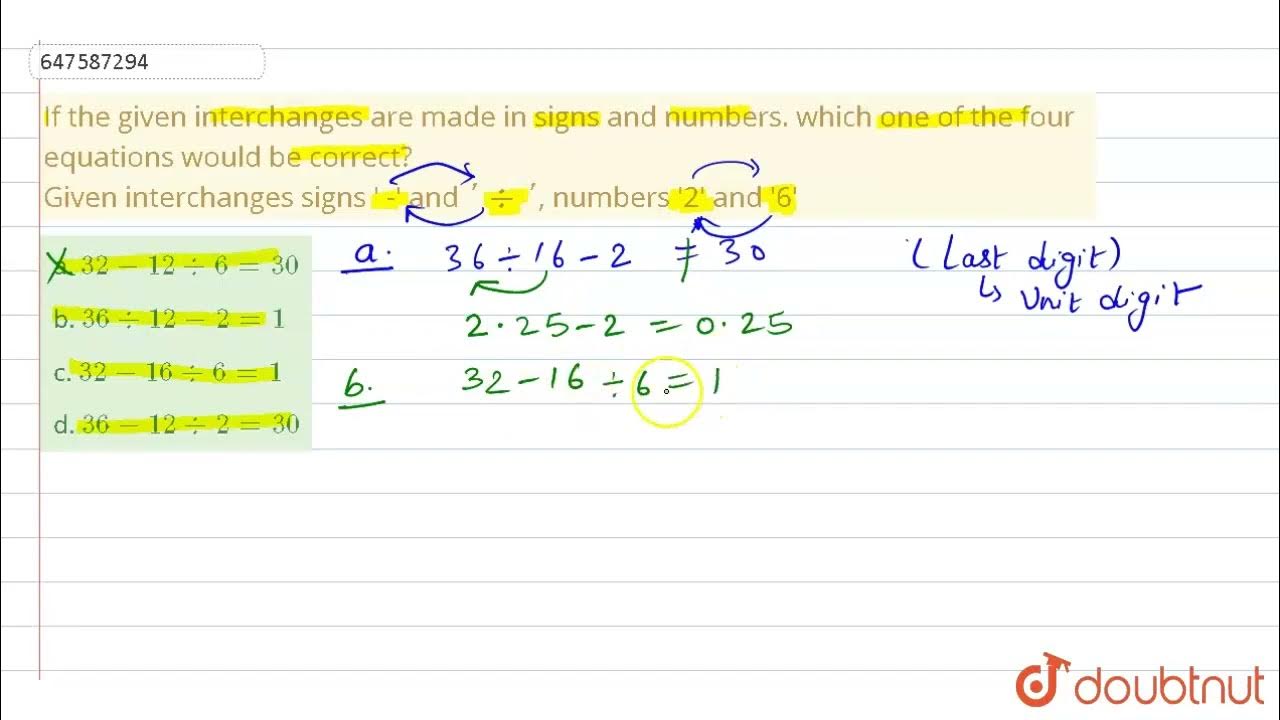 647587294
If the given interchanges are made in signs and numbers. which one of the four
equations would be correct?
Given interchanges signs '-' and '÷', numbers '2' and '6'
a. 32 − 12 ÷ 6 = 30
b. 36 ÷ 12 − 2 = 1
c. 32 − 16 ÷ 6 = 1
d. 36 − 12 ÷ 2 = 30
a. 36 ÷ 16 − 2 ≠ 30
2.25 − 2 = 0.25
b. 32 − 16 ÷ 6 = 1
(Last digit)
↳ Unit digit
doubtnut